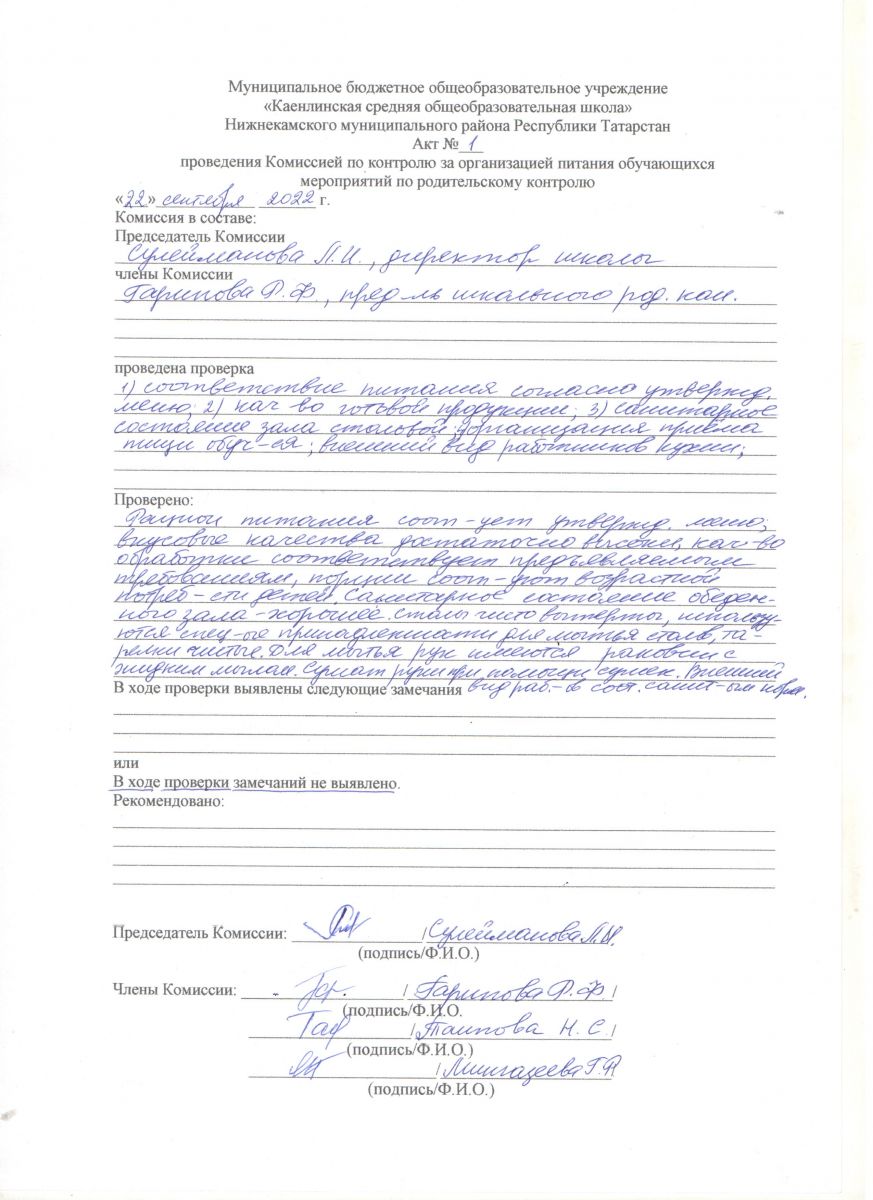 Муниципальное бюджетное общеобразовательное учреждение
«Каенлинская средняя общеобразовательная школа»
Нижнекамского муниципального района Республики Татарстан
Акт № 1
проведения Комиссией по контролю за организацией питания обучающихся
мероприятий по родительскому контролю
«22» сентября 2022 г.
Комиссия в составе:
Председатель Комиссии
Сулейманова Л.И., директор школы
члены Комиссии
Гарипова Р.Ф., пред-ль школьного род. ком.
проведена проверка
1) соответствие питания согласно утвержд.
меню; 2) кач-во готовой продукции; 3) санитарное
состояние зала столовой; организация приема
пищи обуч-ся; внешний вид работников кухни;
Проверено:
Рацион питания соот-ует утвержд. меню;
вкусовые качества достаточно высокие, кач-во
обработки соответствует предъявляемым
требованиям, порции соот-уют возрастной
потреб-сти детей. Санитарное состояние обеден-
ного зала - хорошее. Столы чисто вытерты, использу-
ются спец-ые принадлежности для мытья столов, та-
релки чистые. Для мытья рук имеются раковины с
жидким мылом. Сушат руки при помощи сушек. Внешний
В ходе проверки выявлены следующие замечания вид раб.-ов соот. санит-ым норм.
или
В ходе проверки замечаний не выявлено.
Рекомендовано:
Председатель Комиссии: / Сулейманова Л.И.
(подпись/Ф.И.О.)
Члены Комиссии: / Гарипова Р.Ф. /
(подпись/Ф.И.О.
/ Таипова Н.С. /
(подпись/Ф.И.О.)
/ Мингазеева Г.Р.
(подпись/Ф.И.О.)